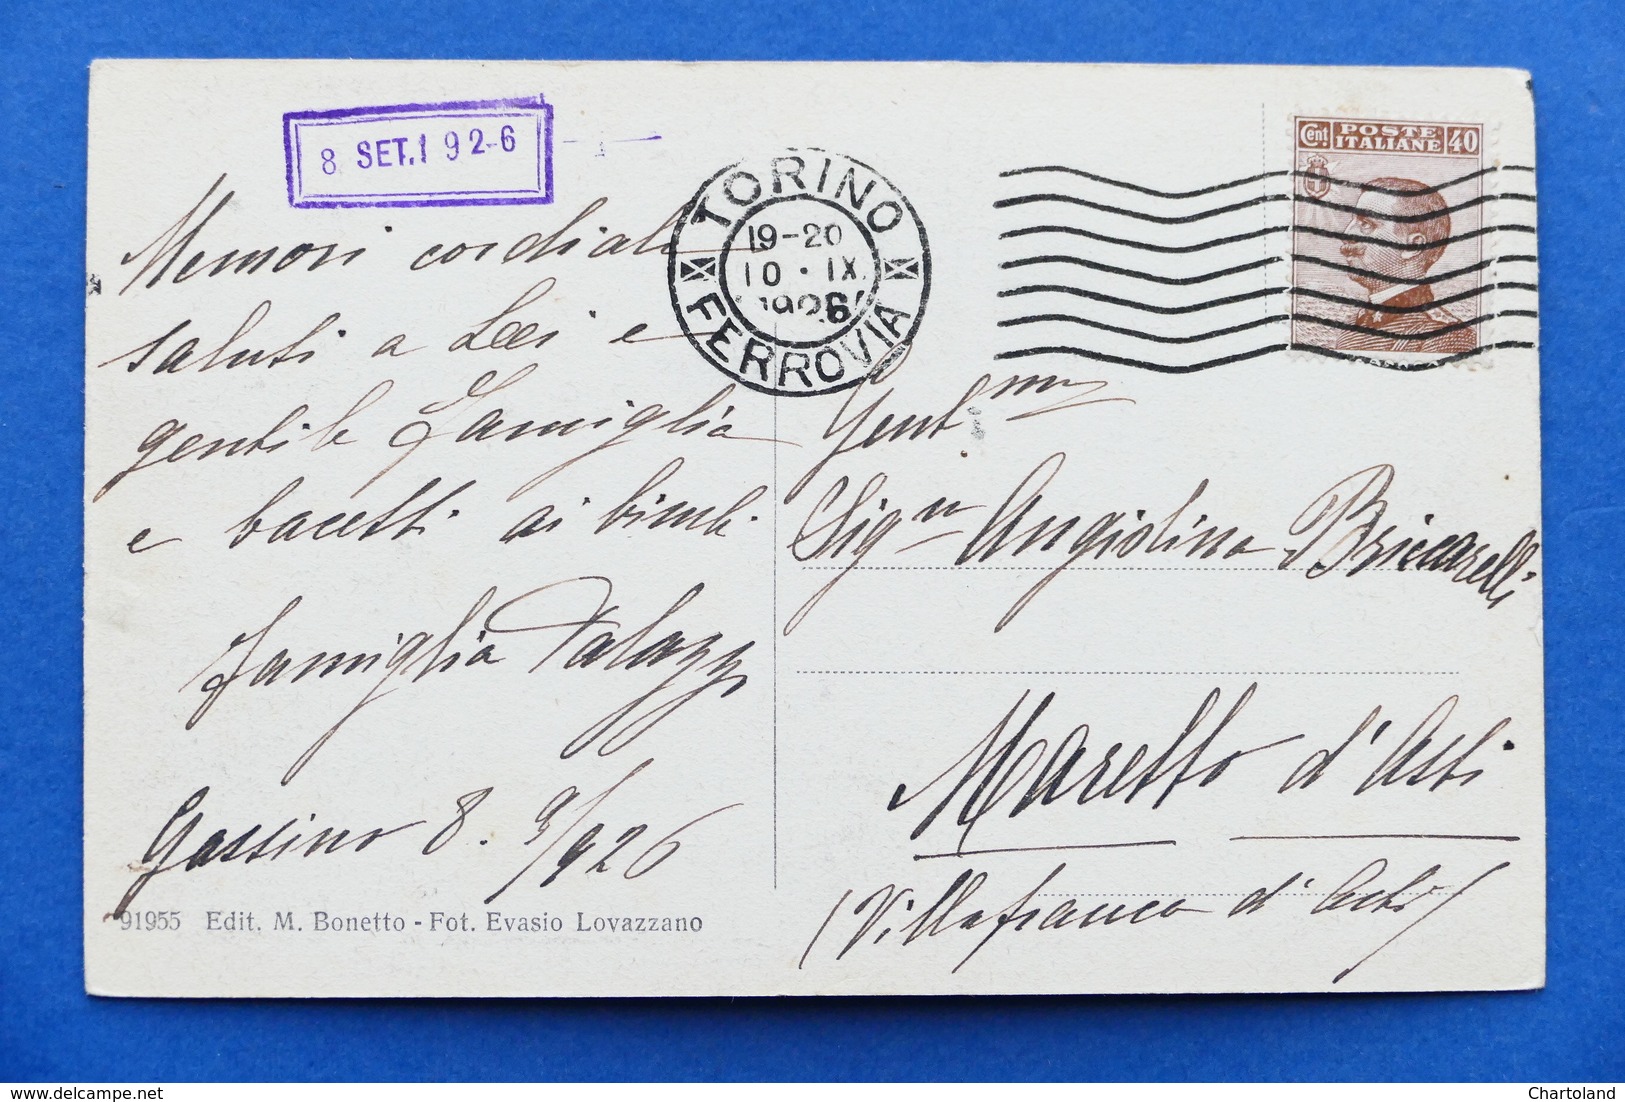 8 SET.192-6
TORINO
19-20
10·IX
1926
FERROVIA
Cent POSTE ITALIANE 40
Memori cordiali
saluti a Lei e
gentile famiglia
e bacetti ai bimbi
famiglia Palazzi
Gassino 8. 9/926
91955 Edit. M. Bonetto - Fot. Evasio Lovazzano
Gent.ma
Sig.ra Angiolina Briccarelli
Maretto d'Asti
(Villafranca d'Asti)
Chartoland